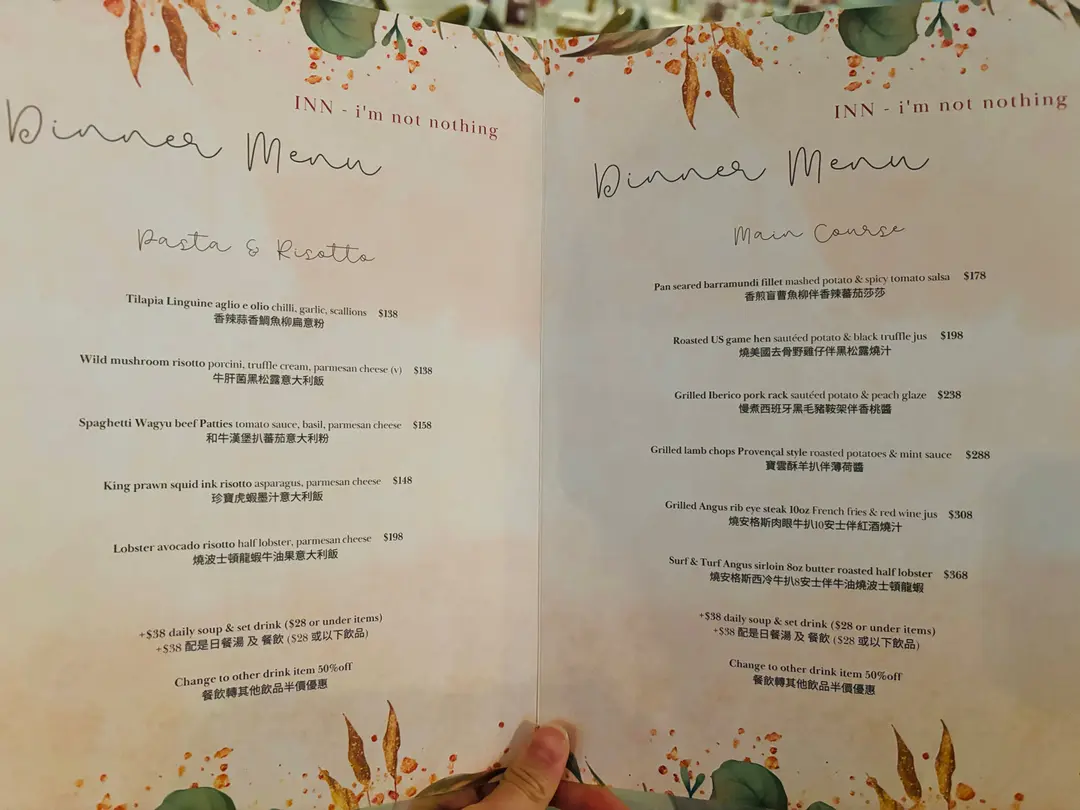 INN - i'm not nothing
Dinner Menu
Pasta & Risotto
Tilapia Linguine aglio e olio chilli, garlic, scallions $138
香辣蒜香鯛魚柳扁意粉
Wild mushroom risotto porcini, truffle cream, parmesan cheese (v) $138
牛肝菌黑松露意大利飯
Spaghetti Wagyu beef Patties tomato sauce, basil, parmesan cheese $158
和牛漢堡扒蕃茄意大利粉
King prawn squid ink risotto asparagus, parmesan cheese $148
珍寶虎蝦墨汁意大利飯
Lobster avocado risotto half lobster, parmesan cheese $198
燒波士頓龍蝦牛油果意大利飯
+$38 daily soup & set drink ($28 or under items)
+$38 配是日餐湯 及 餐飲 ($28 或以下飲品)
Change to other drink item 50%off
餐飲轉其他飲品半價優惠
INN - i'm not nothing
Dinner Menu
Main Course
Pan seared barramundi fillet mashed potato & spicy tomato salsa $178
香煎盲曹魚柳伴香辣蕃茄莎莎
Roasted US game hen sautéed potato & black truffle jus $198
燒美國去骨野雞仔伴黑松露燒汁
Grilled Iberico pork rack sautéed potato & peach glaze $238
慢煮西班牙黑毛豬鞍架伴香桃醬
Grilled lamb chops Provençal style roasted potatoes & mint sauce $288
寶雲酥羊扒伴薄荷醬
Grilled Angus rib eye steak 10oz French fries & red wine jus $308
燒安格斯肉眼牛扒10安士伴紅酒燒汁
Surf & Turf Angus sirloin 8oz butter roasted half lobster $368
燒安格斯西冷牛扒8安士伴牛油燒波士頓龍蝦
+$38 daily soup & set drink ($28 or under items)
+$38 配是日餐湯 及 餐飲 ($28 或以下飲品)
Change to other drink item 50%off
餐飲轉其他飲品半價優惠